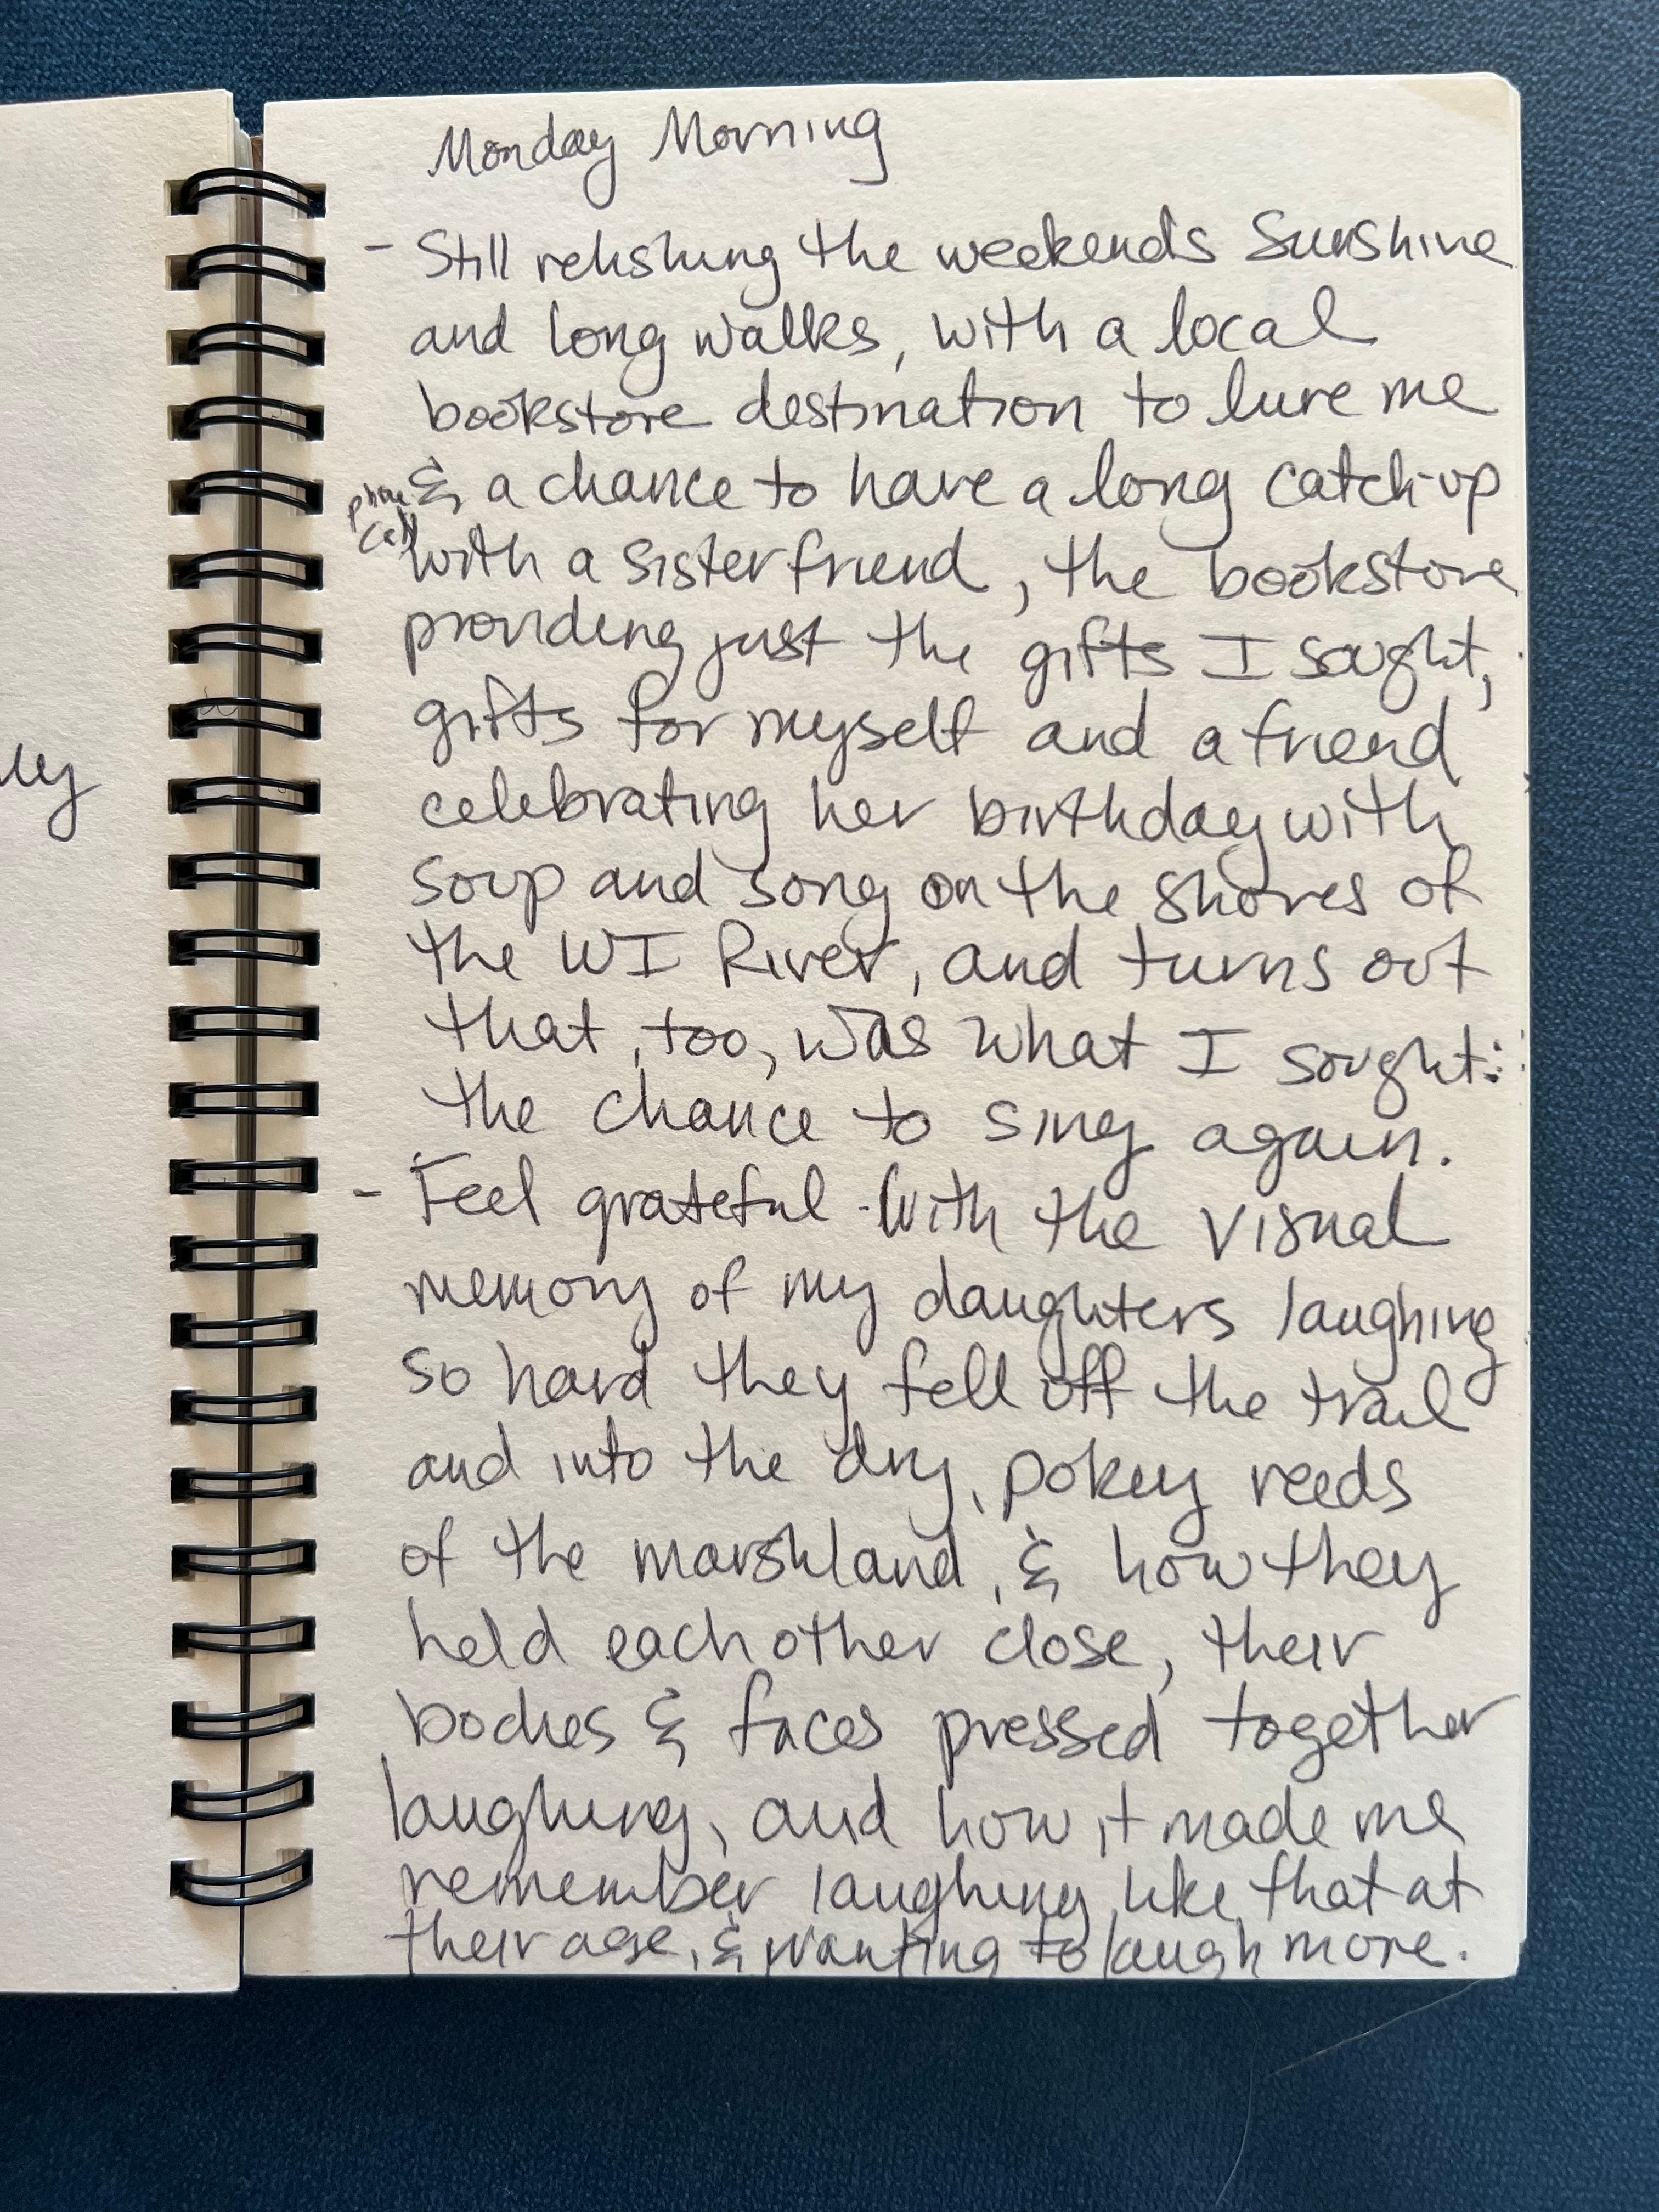 Monday Morning
- Still relishing the weekends Sunshine
and long walks, with a local
bookstore destination to lure me
& a chance to have a long catch-up
phone
call
with a sister friend, the bookstore
providing just the gifts I sought,
gifts for myself and a friend
celebrating her birthday with
soup and song on the shores of
the WI River, and turns out
that, too, was what I sought:
the chance to sing again.
- Feel grateful - with the visual
memory of my daughters laughing
so hard they fell off the trail
and into the dry, pokey reeds
of the marshland, & how they
held each other close, their
bodies & faces pressed together
laughing, and how it made me
remember laughing like that at
their age, & wanting to laugh more.